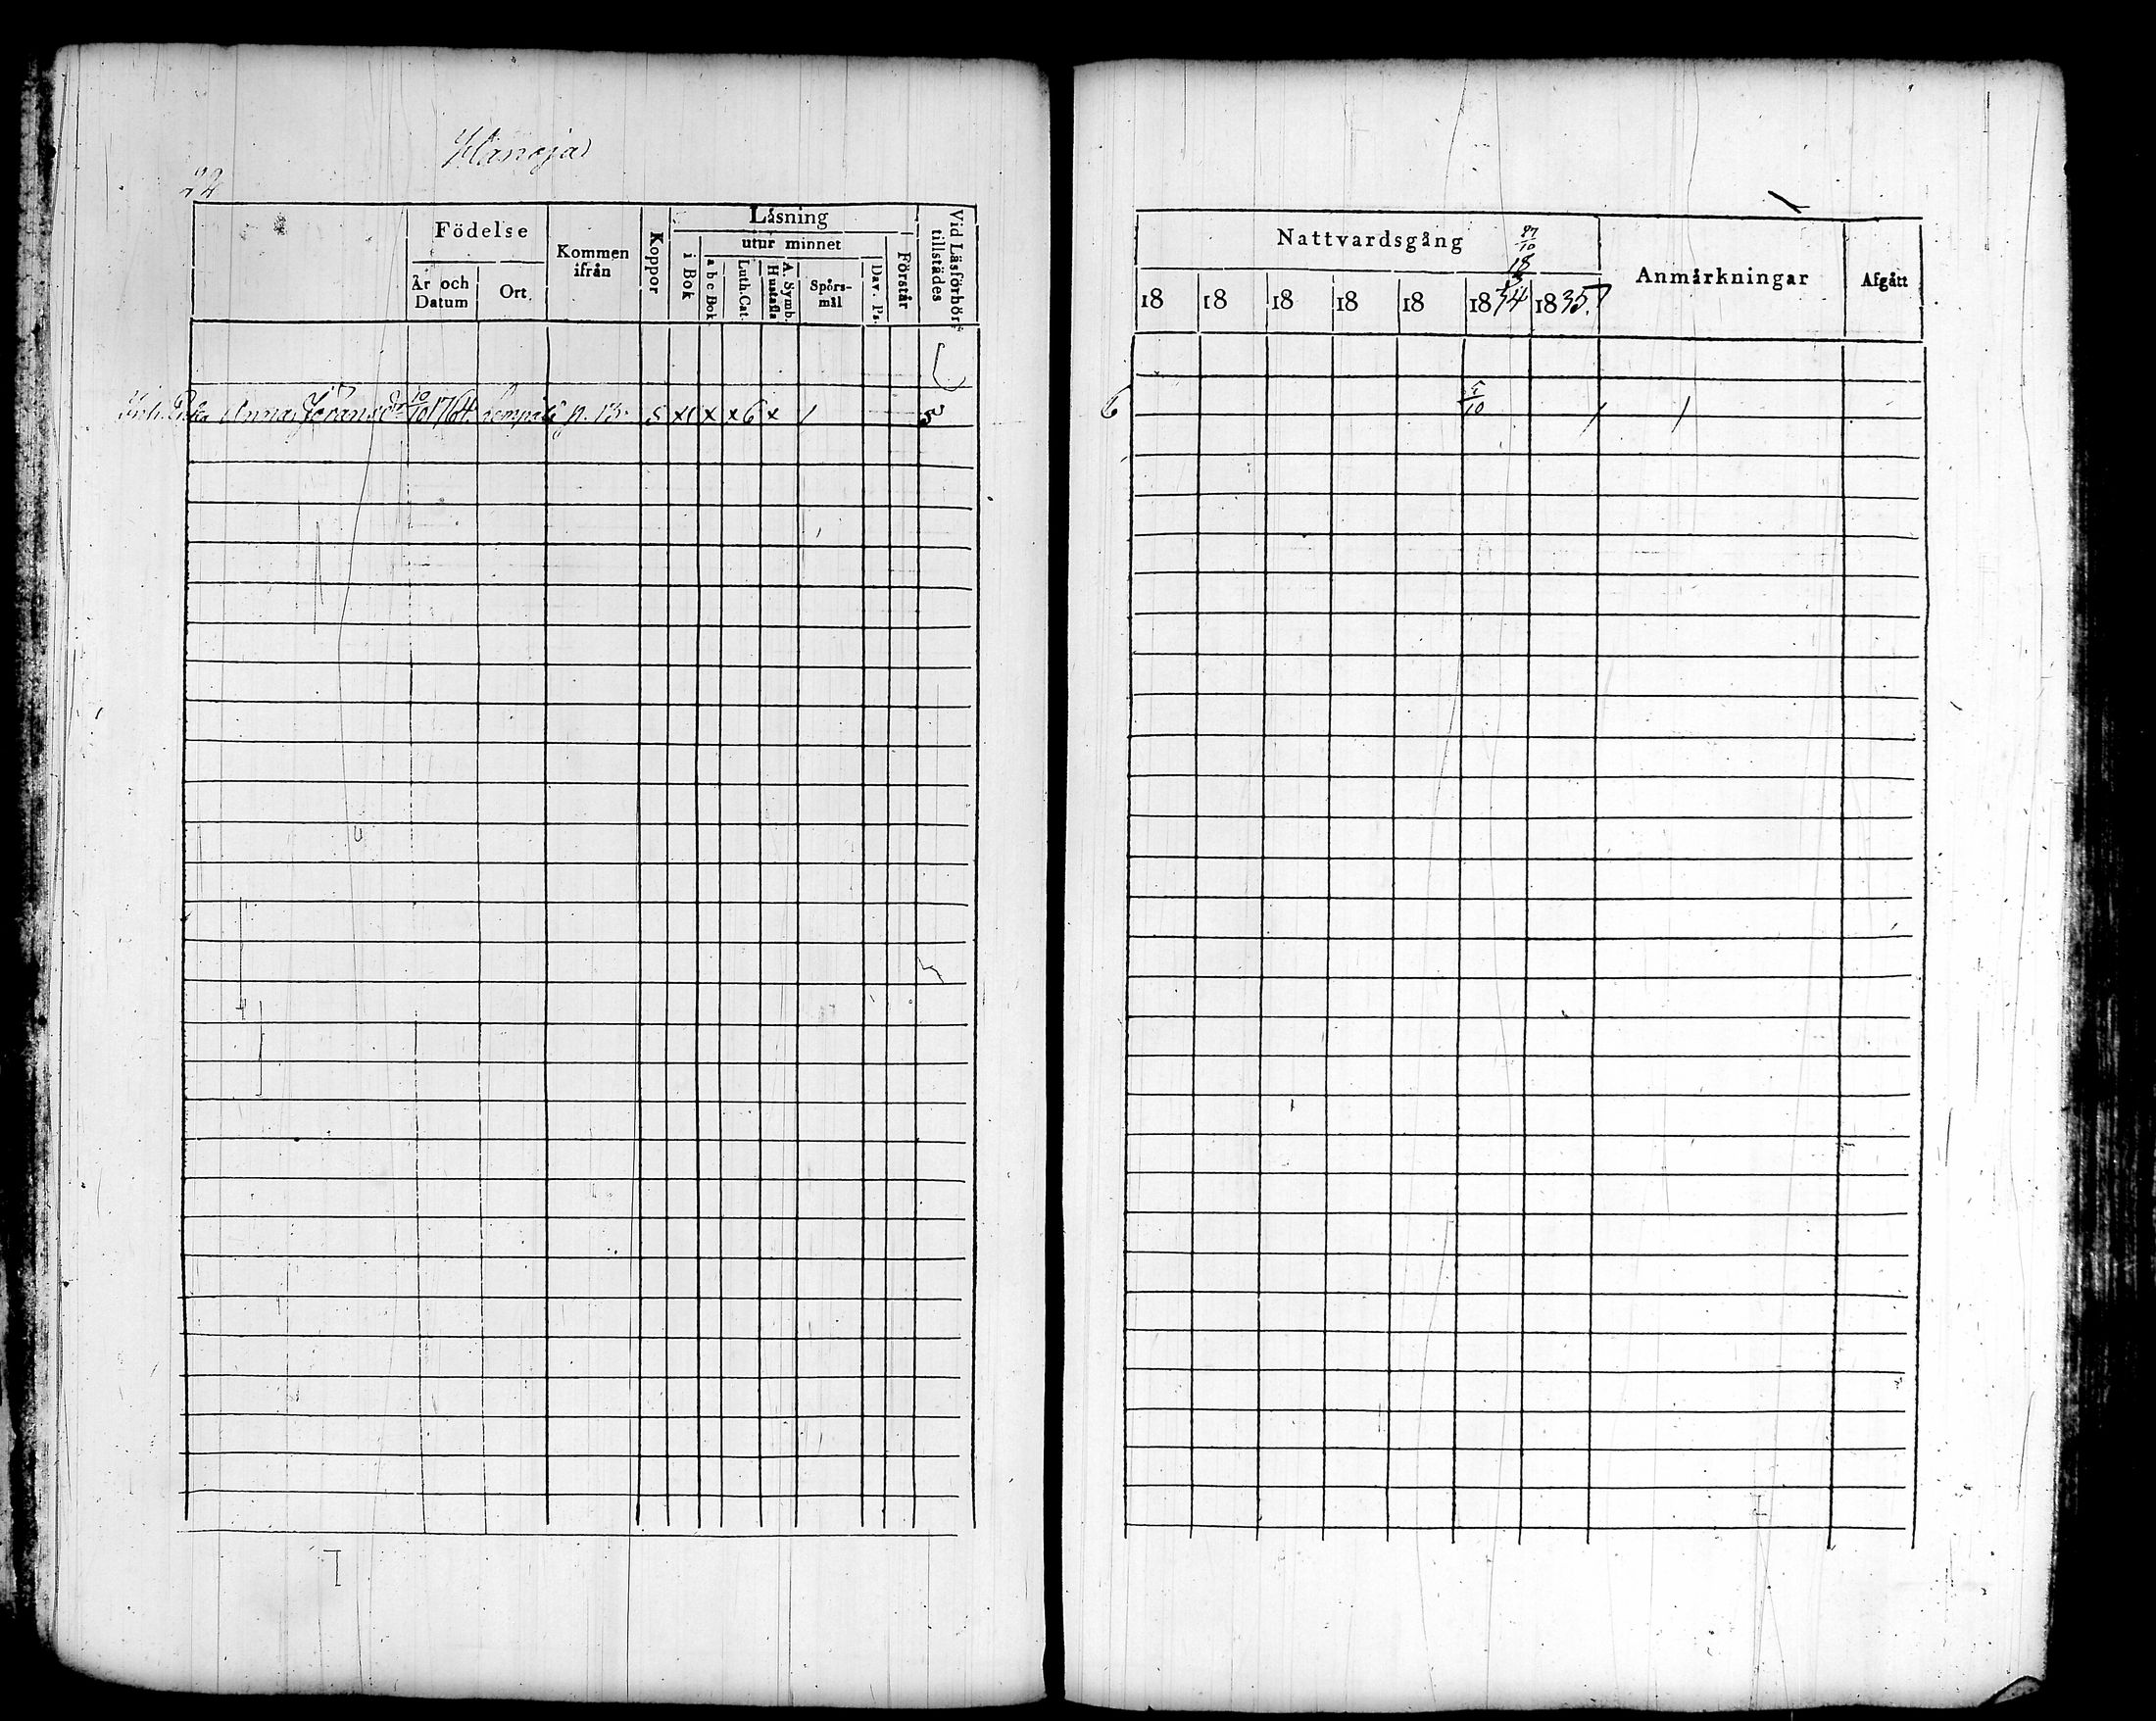 22
Födelse
Kommen ifrån
Koppor
Läsning
Vid Läsförhör tillstädes
År och Datum
Ort
i Bok
utur minnet
Förstår
a b c Bok
Luth. Cat.
A. Symb. Hustafla
Spörsmål
Dav. Ps.
Anna Jöransdr 10/10 1764. p. 13. s x x x 6 x
Nattvardsgång
Anmärkningar
Afgått
18 18 18 18 18 1834 1835.
6 5/10